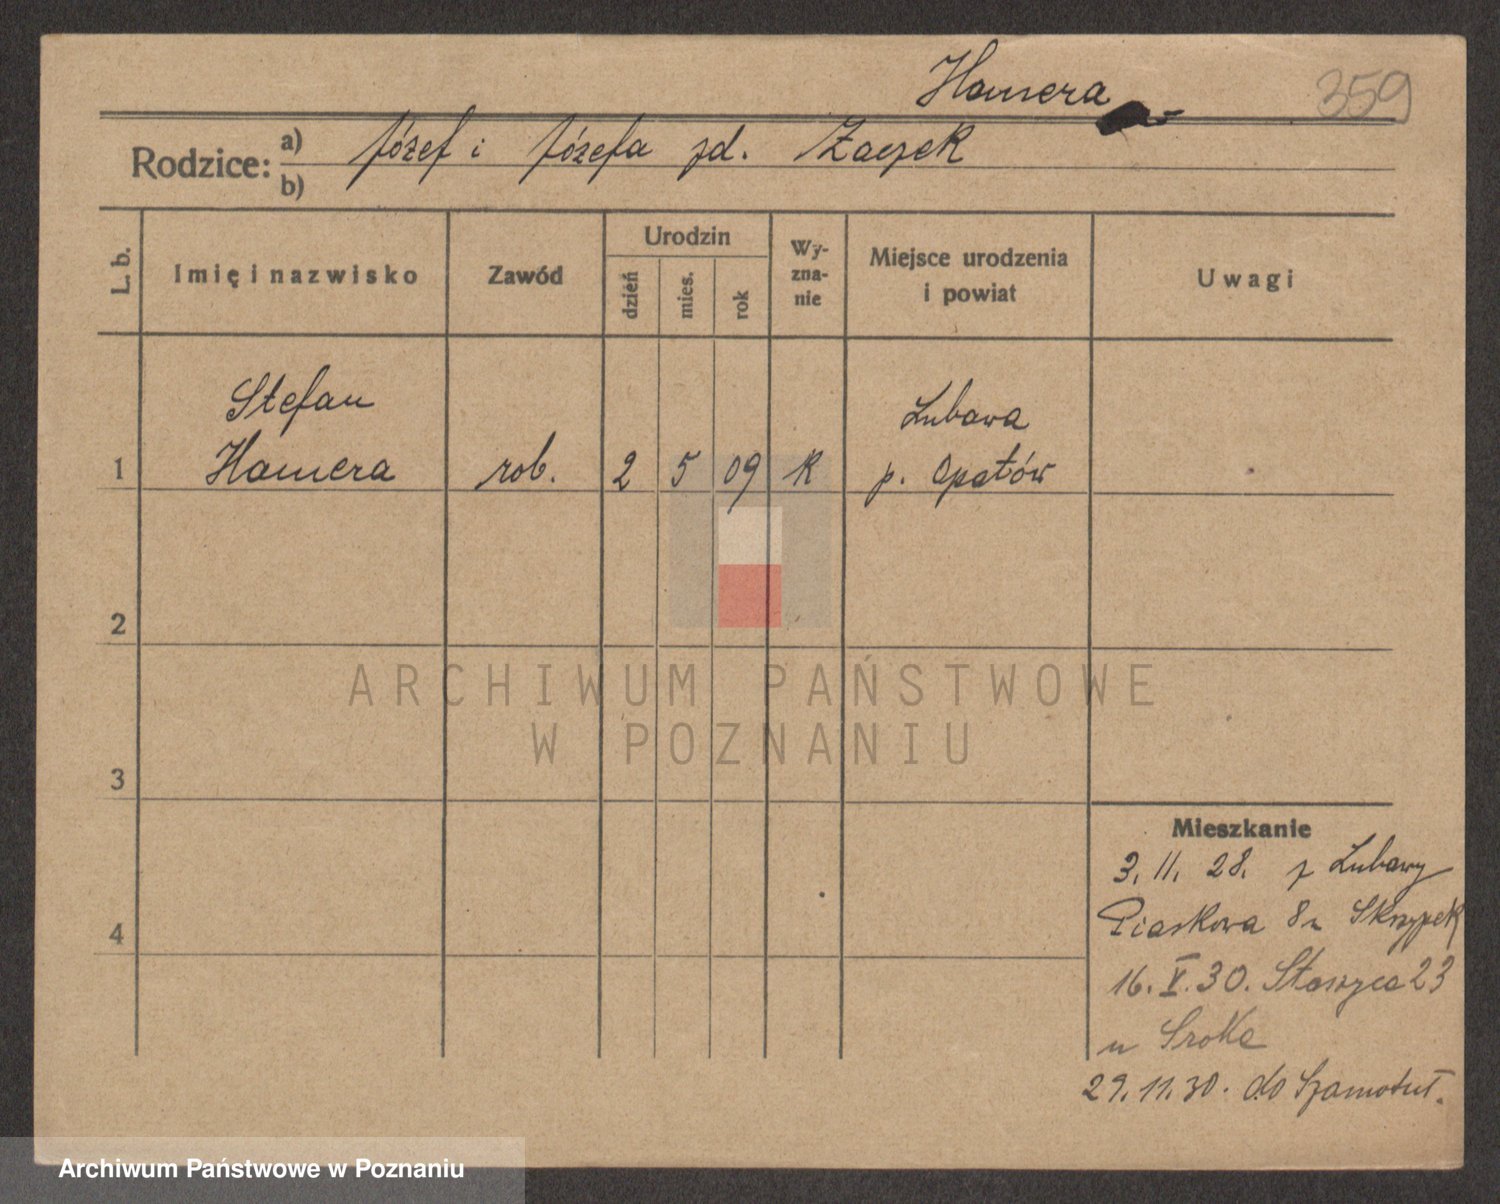 Hamera
359
Rodzice: a) Józef i Józefa zd. Zaczek
b)
L. b.
Imię i nazwisko
Zawód
Urodzin
dzień
mies.
rok
Wy-
zna-
nie
Miejsce urodzenia
i powiat
Uwagi
Stefan
Lubawa
1 Hamera rob. 2 5 09 k p. Opatów
2
3
4
Mieszkanie
3. II. 28. z Lubawy
Piaskowa 8 u Skrzypek
16. V. 30. Staszyca 23
u Sroke
29. 11. 30. do Szamotuł.
ARCHIWUM PAŃSTWOWE
W POZNANIU
Archiwum Państwowe w Poznaniu